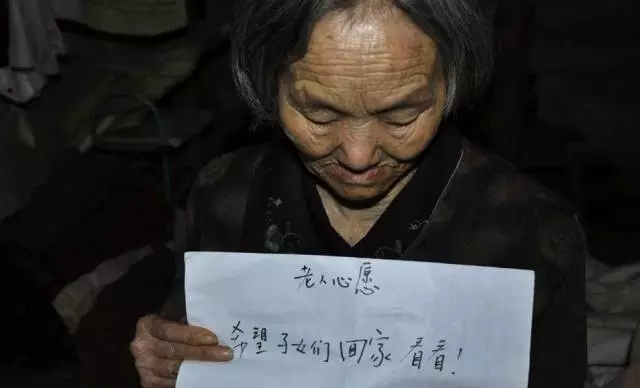 老人心愿
希望子女们回家看看!